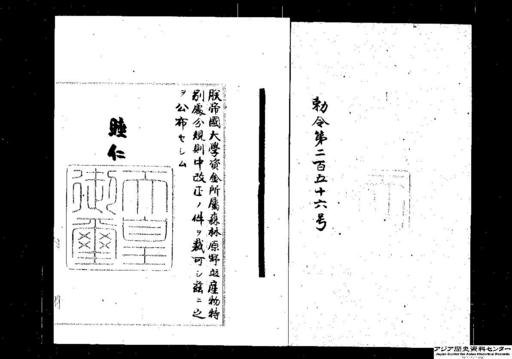 勅令第二百五十六号
朕帝國大學資金所属森林原野及産物特
別處分規則中改正ノ件ヲ裁可シ茲ニ之
ヲ公布セシム
睦仁
天皇
御璽
アジア歴史資料センター
Japan Center for Asian Historical Records